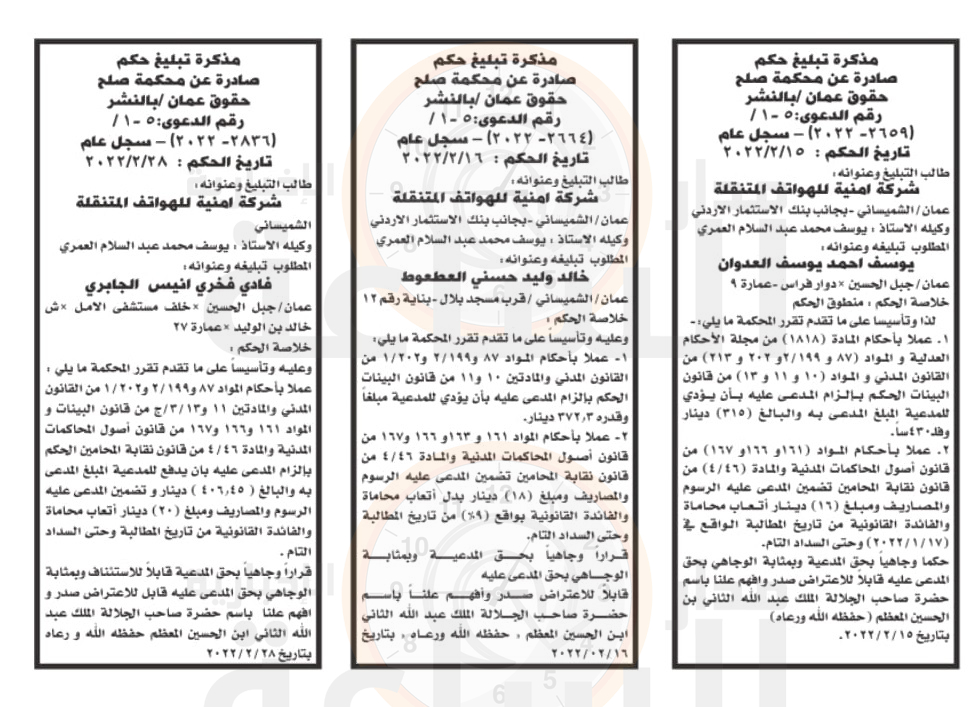 مذكرة تبليغ حكم
صادرة عن محكمة صلح
حقوق عمان /بالنشر
رقم الدعوى:٥ -١ /
(٢٦٥٩- ٢٠٢٢) – سجل عام
تاريخ الحكم : ٢٠٢٢/٢/١٥
طالب التبليغ وعنوانه :
شركة امنية للهواتف المتنقلة
عمان / الشميساني -بجانب بنك الاستثمار الاردني
وكيله الاستاذ : يوسف محمد عبد السلام العمري
المطلوب تبليغه وعنوانه :
يوسف احمد يوسف العدوان
عمان/ جبل الحسين ×دوار فراس -عمارة ٩
خلاصة الحكم : منطوق الحكم
لذا وتأسيسا على ما تقدم تقرر المحكمة ما يلي:-
١. عملا بأحكام المادة (١٨١٨) من مجلة الأحكام
العدلية و المواد (٨٧ و ٢/١٩٩و ٢٠٢ و ٢١٣) من
القانون المدني و المواد (١٠ و ١١ و ١٣) من قانون
البينات الحكم بـإلـزام المدعـى عليه بـأن يـؤدي
للمدعية المبلغ المدعى بـه والبـالغ (٣١٥) دينار
وفلد٤٣٠سا.
٢. عملا بـأحكـام المـواد (١٦١و ١٦٦و ١٦٧) من
قانون أصول المحاكمات المدنية والمادة (٤/٤٦) من
قانون نقابة المحامين تضمين المدعى عليه الرسوم
والمصـاريـف ومبـلغ (١٦) دينـار أتـعـاب محـامـاة
والفائدة القانونية من تاريخ المطالبة الواقـع في
(٢٠٢٢/١/١٧) وحتى السداد التام.
حكما وجاهياً بحق المدعية وبمثابة الوجاهي بحق
المدعى عليه قابلاً للاعتراض صدر وافهم علنا باسم
حضرة صاحب الجلالة الملك عبد الله الثاني بن
الحسين المعظم ( حفظه الله ورعاه)
بتاريخ ٢٠٢٢/٢/١٥.
مذكرة تبليغ حكم
صادرة عن محكمة صلح
حقوق عمان /بالنشر
رقم الدعوى:٥ -١ /
(٢٦٦٤- ٢٠٢٢) – سجل عام
تاريخ الحكم : ٢٠٢٢/٢/١٦
طالب التبليغ وعنوانه :
شركة امنية للهواتف المتنقلة
عمان / الشميساني -بجانب بنك الاستثمار الاردني
وكيله الاستاذ : يوسف محمد عبد السلام العمري
المطلوب تبليغه وعنوانه :
خالد وليد حسني العطعوط
عمان/ الشميساني / قرب مسجد بلال -بناية رقم ١٢
خلاصة الحكم :
وعليه وتأسيساً على ما تقدم تقرر المحكمة ما يلي :
١- عملا بأحكام المـواد ٨٧ و٢/١٩٩ و١/٢٠٢ من
القانون المدني والمادتين ١٠ و١١ من قانون البينات
الحكم بإلزام المدعى عليه بأن يؤدي للمدعية مبلغاً
وقدره ٣٧٢,٣ دينار.
٢- عملا بأحكام المواد ١٦١ و ١٦٣و ١٦٦ و١٦٧ من
قانون أصـول المحاكمات المدنية والمـادة ٤/٤٦ من
قانون نقابة المحامين تضمين المدعى عليه الرسوم
والمصاريف ومبلغ (١٨) دينار بدل أتعاب محاماة
والفائدة القانونية بواقع (٩٪) من تاريخ المطالبة
وحتى السداد التام.
قــراراً وجـاهيـاً بحــق المدعيـــة وبمثابـــة
الوجــاهي بحق المدعى عليه
قابلاً للاعتراض صــدر وأفهــم علنـــاً بـأســم
حضــرة صاحــب الجـلالة الملك عبد الله الثاني
ابـن الحسين المعظم ، حفظه الله ورعـاه ، بتاريخ
٢٠٢٢/٠٢/١٦
مذكرة تبليغ حكم
صادرة عن محكمة صلح
حقوق عمان /بالنشر
رقم الدعوى:٥ -١ /
(٢٨٣٦- ٢٠٢٢) – سجل عام
تاريخ الحكم : ٢٠٢٢/٢/٢٨
طالب التبليغ وعنوانه :
شركة امنية للهواتف المتنقلة
الشميساني
وكيله الاستاذ : يوسف محمد عبد السلام العمري
المطلوب تبليغه وعنوانه :
فادي فخري انيس الجابري
عمان/ جبل الحسين ×خلف مستشفى الامل ×ش
خالد بن الوليد ×عمارة ٢٧
خلاصة الحكم :
وعليه وتأسيساً على ما تقدم تقرر المحكمة ما يلي :
عملا بأحكام المواد ٨٧ و٢/١٩٩ و١/٢٠٢ من القانون
المدني والمادتين ١١ و٣/١٣/ج من قانون البينات و
المواد ١٦١ و١٦٦ و١٦٧ من قانون أصول المحاكمات
المدنية والمادة ٤/٤٦ من قانون نقابة المحامين الحكم
بإلزام المدعى عليه بان يدفع للمدعية المبلغ المدعى
به والبالغ ( ٤٠٦,٤٥ ) دينار و تضمين المدعى عليه
الرسوم والمصاريف ومبلغ (٢٠) دينار أتعاب محاماة
والفائدة القانونية من تاريخ المطالبة وحتى السداد
التام .
قراراً وجاهياً بحق المدعية قابلاً للاستئناف وبمثابة
الوجاهي بحق المدعى عليه قابل للاعتراض صدر و
افهم علنا باسم حضرة صاحب الجلالة الملك عبد
الله الثاني ابن الحسين المعظم حفظه الله و رعاه
بتاريخ ٢٠٢٢/٢/٢٨